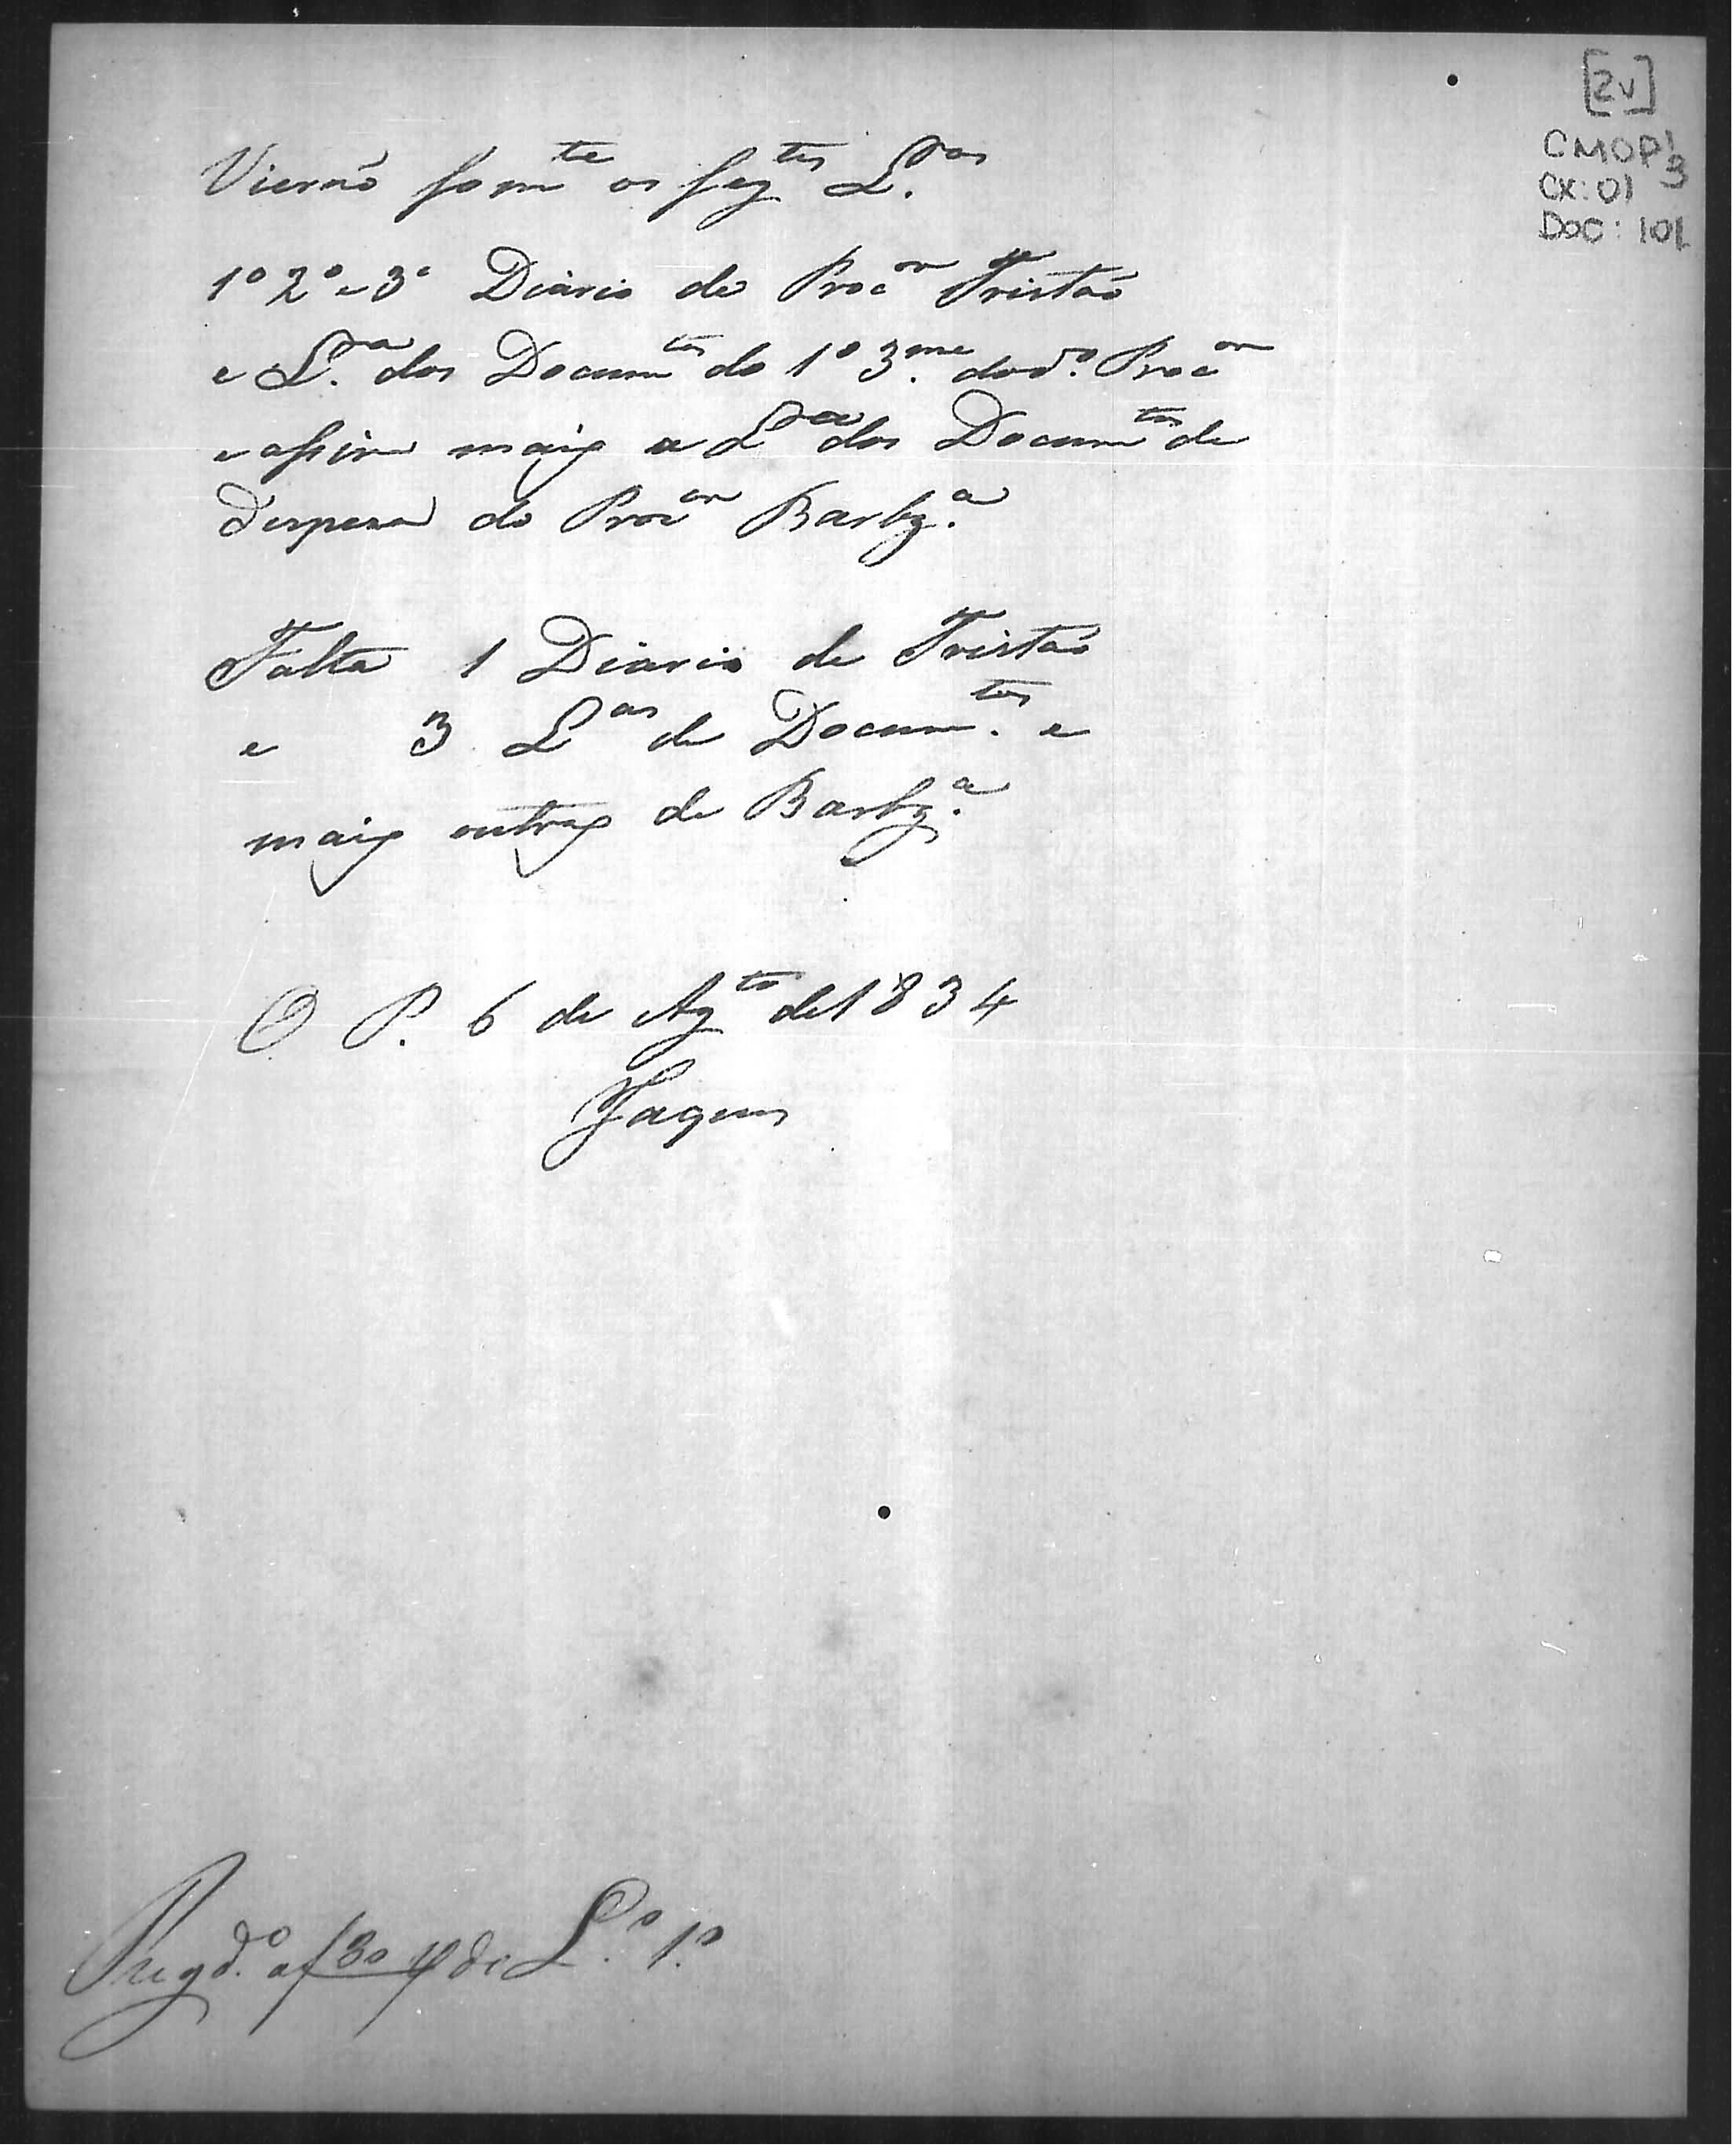 [2v]
CMOP 1
3
CX: 01
DOC: 101
Vierão som.te os seg.tes L.ros
1º 2º e 3º Diario do Proc.or Tristão
e L.ra dos Docum.tos do 1º 3.me do d.º Proc.or
e assim mais a L.ra dos Docum.tos de
Despeza do Proc.or Barbz.ª
Falta 1 Diario de Tristão
e 3 L.as de Docum.tos e
mais outras de Barbz.ª
O P. 6 de Ag.to de 1834
Regd.º a f 30 de L.º 1.º